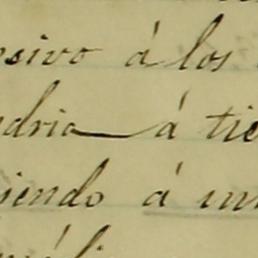 sivo á los
dria á tie
iendo á un